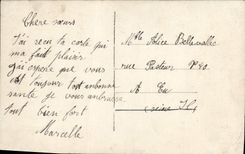 Chere soeur
J'ai recu ta carte qui
ma fait plaisir
j'espere que vous
est toujour tout en bonne
sante je vous embrasse
tout bien fort
Marcelle
Mlle Alice Bellevallee
rue Pasteur N° 20
A Eu